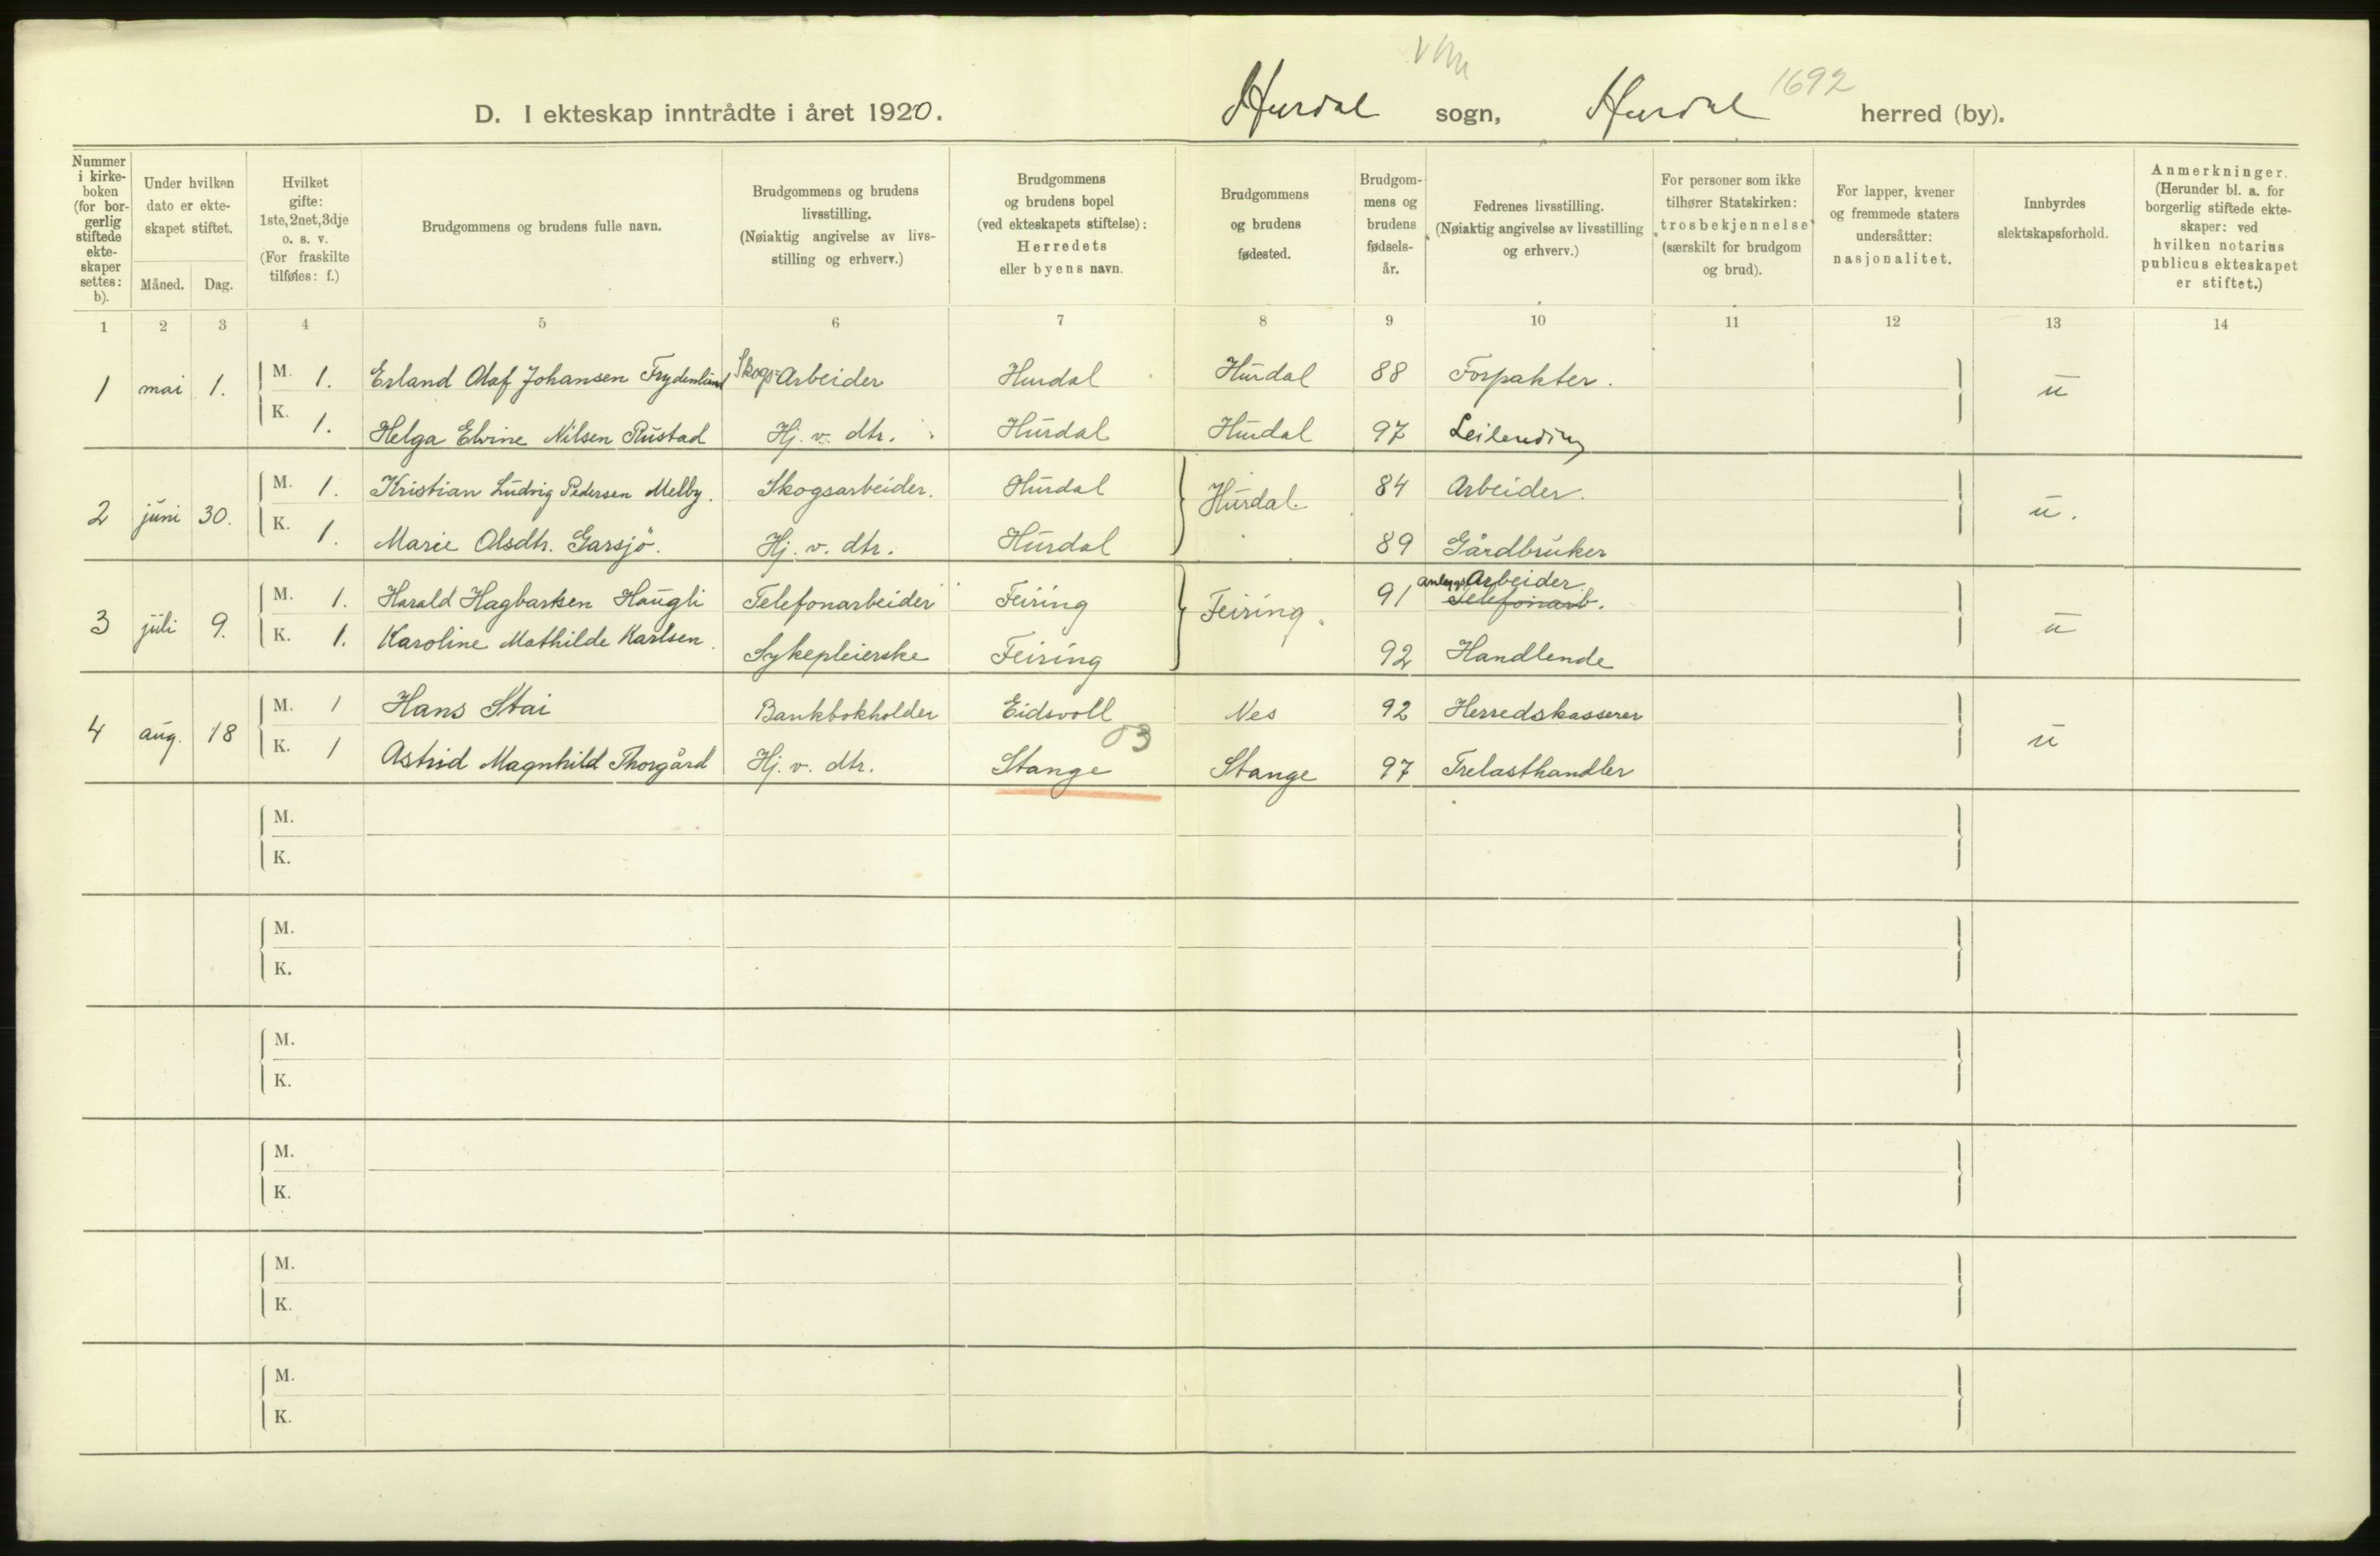 1692
D. I ekteskap inntrådte i året 1920. Hurdal sogn, Hurdal herred (by).
Nummer i kirkeboken (for borgerlig stiftede ekteskaper settes: b).
Under hvilken dato er ekteskapet stiftet.
Måned. Dag.
Hvilket gifte: 1ste, 2net, 3dje o. s. v. (For fraskilte tilføies: f.)
Brudgommens og brudens fulle navn.
Brudgommens og brudens livsstilling. (Nøiaktig angivelse av livsstilling og erhverv.)
Brudgommens og brudens bopel (ved ekteskapets stiftelse): Herredets eller byens navn.
Brudgommens og brudens fødested.
Brudgommens og brudens fødselsår.
Fedrenes livsstilling. (Nøiaktig angivelse av livsstilling og erhverv.)
For personer som ikke tilhører Statskirken: trosbekjennelse (særskilt for brudgom og brud).
For lapper, kvener og fremmede staters undersåtter: nasjonalitet.
Innbyrdes slektskapsforhold.
Anmerkninger. (Herunder bl. a. for borgerlig stiftede ekteskaper: ved hvilken notarius publicus ekteskapet er stiftet.)
1 2 3 4 5 6 7 8 9 10 11 12 13 14
1 mai 1. M. 1. Erland Olaf Johansen Frydenlund Skogs-Arbeider Hurdal Hurdal 88 Forpakter. u
K. 1. Helga Elvine Nilsen Rustad Hj. v. dtr. Hurdal Hurdal 97 Leilending
2 juni 30. M. 1. Kristian Ludvig Pedersen Melby. Skogsarbeider. Hurdal Hurdal. 84 Arbeider. u.
K. 1. Marie Olsdtr. Garsjö. Hj. v. dtr. Hurdal 89 Gårdbruker
3 juli 9. M. 1. Harald Hagbartsen Haugli Telefonarbeider Feiring Feiring. 91 anleggsArbeider. Telefonarb. u
K. 1. Karoline Mathilde Karlsen. Sykepleierske Feiring 92 Handlende
4 aug. 18 M. 1 Hans Stai Bankbokholder Eidsvoll Nes 92 Herredskasserer u
03
K. 1 Astrid Magnhild Thorgård Hj. v. dtr. Stange Stange 97 Trelasthandler
M.
K.
M.
K.
M.
K.
M.
K.
M.
K.
M.
K.